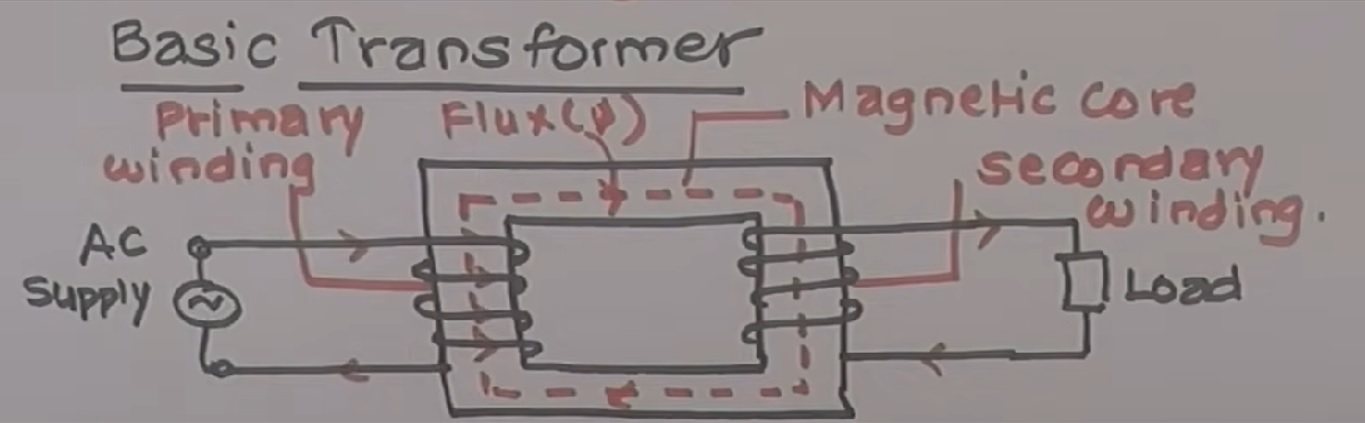 Basic Transformer
Primary winding
Flux(ψ)
Magnetic core
secondary winding.
AC Supply
Load